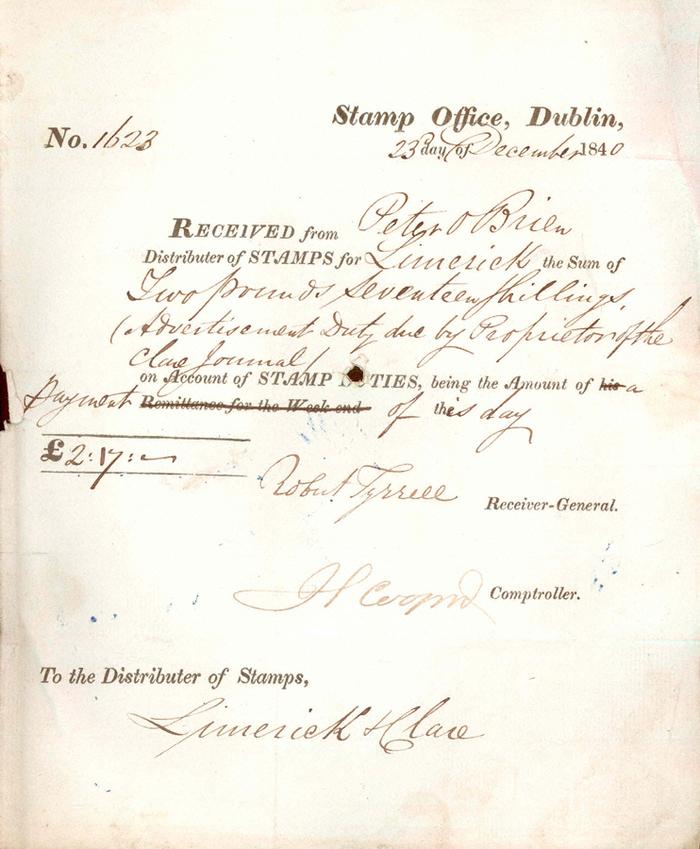 Stamp Office, Dublin,
No. 1623
23rd day of December 1840
RECEIVED from Peter O Brien
Distributer of STAMPS for Limerick the Sum of
Two Pounds Seventeen Shillings
(Advertisement Duty due by Proprietor of the
Clare Journal)
on Account of STAMP DUTIES, being the Amount of his a
payment Remittance for the Week end of this day
£ 2:17:-
Robert Tyrrell Receiver-General.
Comptroller.
To the Distributer of Stamps,
Limerick & Clare